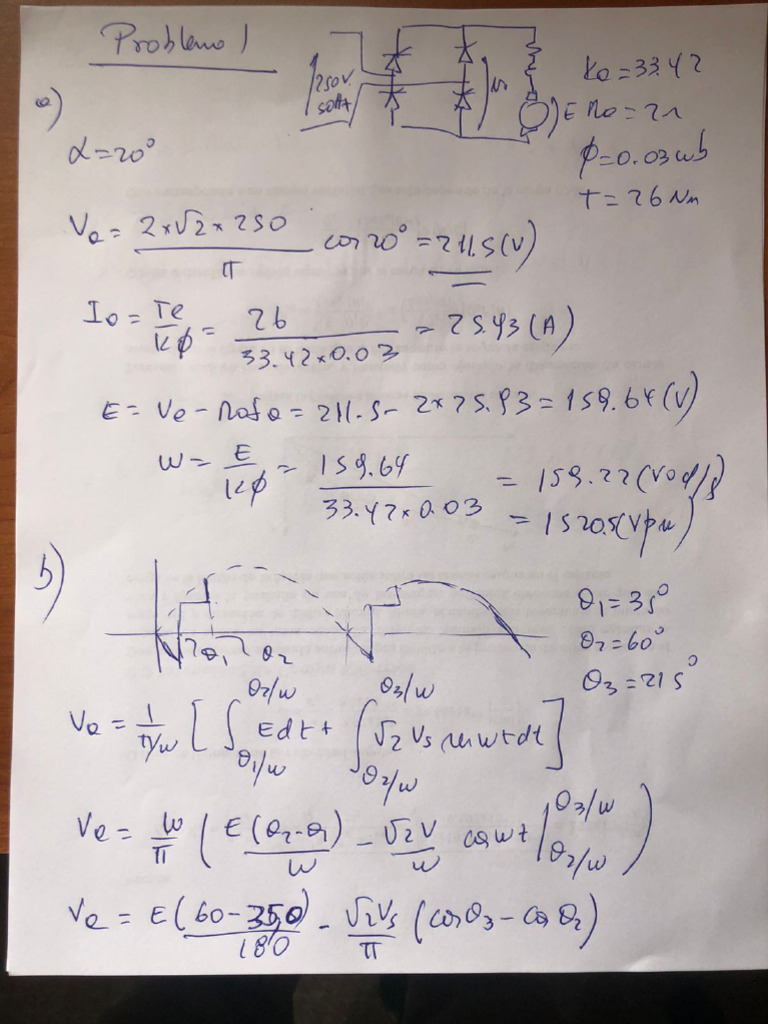 Problema 1
a)
250V
50Hz
E
Ka = 33.42
Ra = 2Ω
ϕ = 0.03 wb
T = 26 Nm
α = 20°
Va = 2×√2×250 / π cos 20° = 211.5 (V)
Ia = Te / Kϕ = 26 / 33.42×0.03 = 25.93 (A)
E = Va − RaIa = 211.5 − 2×25.93 = 159.64 (V)
W = E / Kϕ = 159.64 / 33.42×0.03 = 159.22 (rad/s)
= 1520.5 (rpm)
b)
θ1 θ2
θ1 = 35°
θ2 = 60°
θ3 = 215°
Va = 1 / π/w [ ∫ θ1/w θ2/w E dt + ∫ θ2/w θ3/w √2 Vs sen wt dt ]
Va = w / π ( E(θ2−θ1) / w − √2 V / w cos wt | θ3/w θ2/w )
Va = E (60−35) / 180 − √2 Vs / π (cos θ3 − cos θ2)